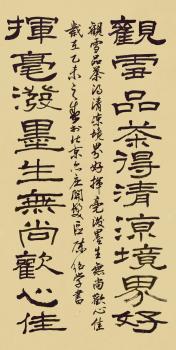 觀雪品茶得清涼境界好
觀雪品茶得清涼境界好揮毫潑墨生無尚歡心佳
歲在乙未之 於北京 書
揮毫潑墨生無尚歡心佳